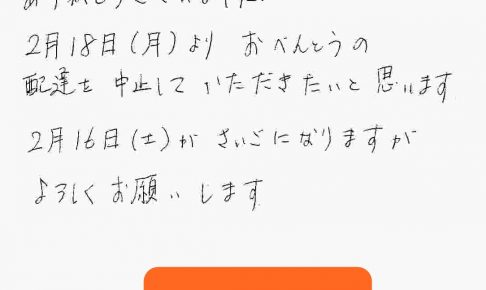 2月18日(月)より おべんとうの
配達を 中止して いただきたいと 思います
2月16日(土)が さいごになりますが
よろしく お願い します